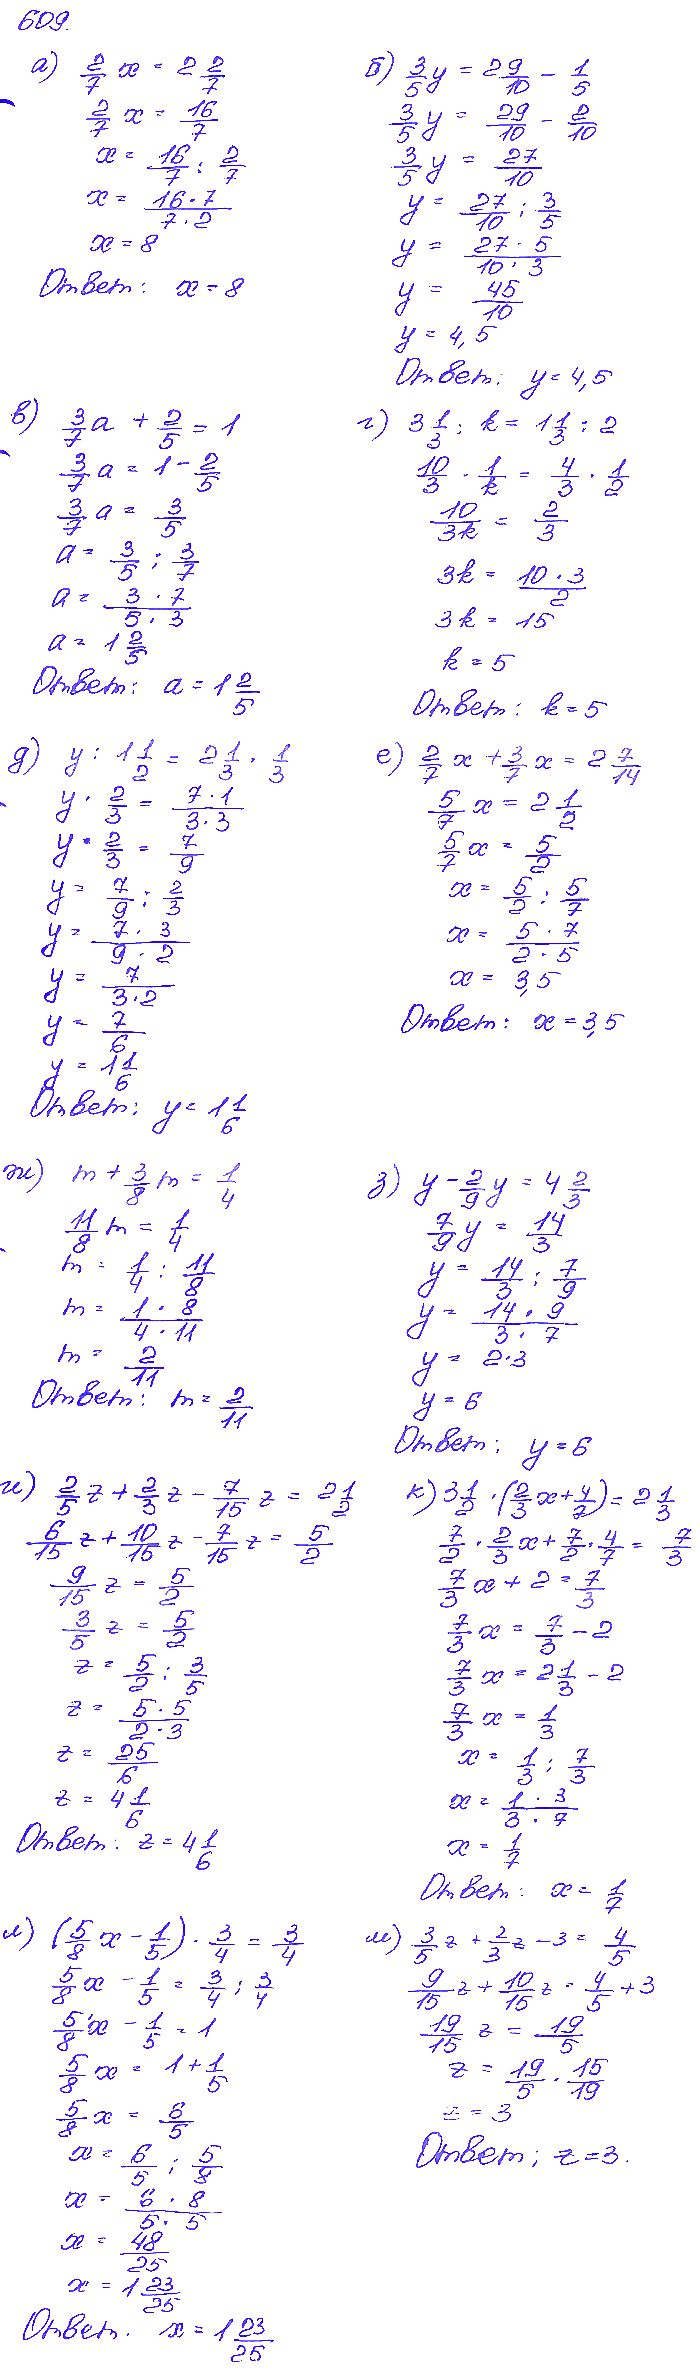 609.
а) 2/7 x = 2 2/7
2/7 x = 16/7
x = 16/7 : 2/7
x = 16·7/7·2
x = 8
Ответ: x = 8
б) 3/5 y = 2 9/10 - 1/5
3/5 y = 29/10 - 2/10
3/5 y = 27/10
y = 27/10 : 3/5
y = 27·5/10·3
y = 45/10
y = 4,5
Ответ: y = 4,5
в) 3/7 a + 2/5 = 1
3/7 a = 1 - 2/5
3/7 a = 3/5
a = 3/5 : 3/7
a = 3·7/5·3
a = 1 2/5
Ответ: a = 1 2/5
г) 3 1/3 : k = 1 1/3 : 2
10/3 · 1/k = 4/3 · 1/2
10/3k = 2/3
3k = 10·3/2
3k = 15
k = 5
Ответ: k = 5
д) y : 1 1/2 = 2 1/3 · 1/3
y · 2/3 = 7·1/3·3
y · 2/3 = 7/9
y = 7/9 : 2/3
y = 7·3/9·2
y = 7/3·2
y = 7/6
y = 1 1/6
Ответ: y = 1 1/6
е) 2/7 x + 3/7 x = 2 7/14
5/7 x = 2 1/2
5/7 x = 5/2
x = 5/2 : 5/7
x = 5·7/2·5
x = 3,5
Ответ: x = 3,5
ж) m + 3/8 m = 1/4
11/8 m = 1/4
m = 1/4 : 11/8
m = 1·8/4·11
m = 2/11
Ответ: m = 2/11
з) y - 2/9 y = 4 2/3
7/9 y = 14/3
y = 14/3 : 7/9
y = 14·9/3·7
y = 2·3
y = 6
Ответ: y = 6
и) 2/5 z + 2/3 z - 7/15 z = 2 1/2
6/15 z + 10/15 z - 7/15 z = 5/2
9/15 z = 5/2
3/5 z = 5/2
z = 5/2 : 3/5
z = 5·5/2·3
z = 25/6
z = 4 1/6
Ответ. z = 4 1/6
к) 3 1/2 · (2/3 x + 4/7) = 2 1/3
7/2 · 2/3 x + 7/2 · 4/7 = 7/3
7/3 x + 2 = 7/3
7/3 x = 7/3 - 2
7/3 x = 2 1/3 - 2
7/3 x = 1/3
x = 1/3 : 7/3
x = 1·3/3·7
x = 1/7
Ответ: x = 1/7
л) (5/8 x - 1/5) · 3/4 = 3/4
5/8 x - 1/5 = 3/4 : 3/4
5/8 x - 1/5 = 1
5/8 x = 1 + 1/5
5/8 x = 6/5
x = 6/5 : 5/8
x = 6·8/5·5
x = 48/25
x = 1 23/25
Ответ. x = 1 23/25
м) 3/5 z + 2/3 z - 3 = 4/5
9/15 z + 10/15 z = 4/5 + 3
19/15 z = 19/5
z = 19/5 · 15/19
z = 3
Ответ: z = 3.